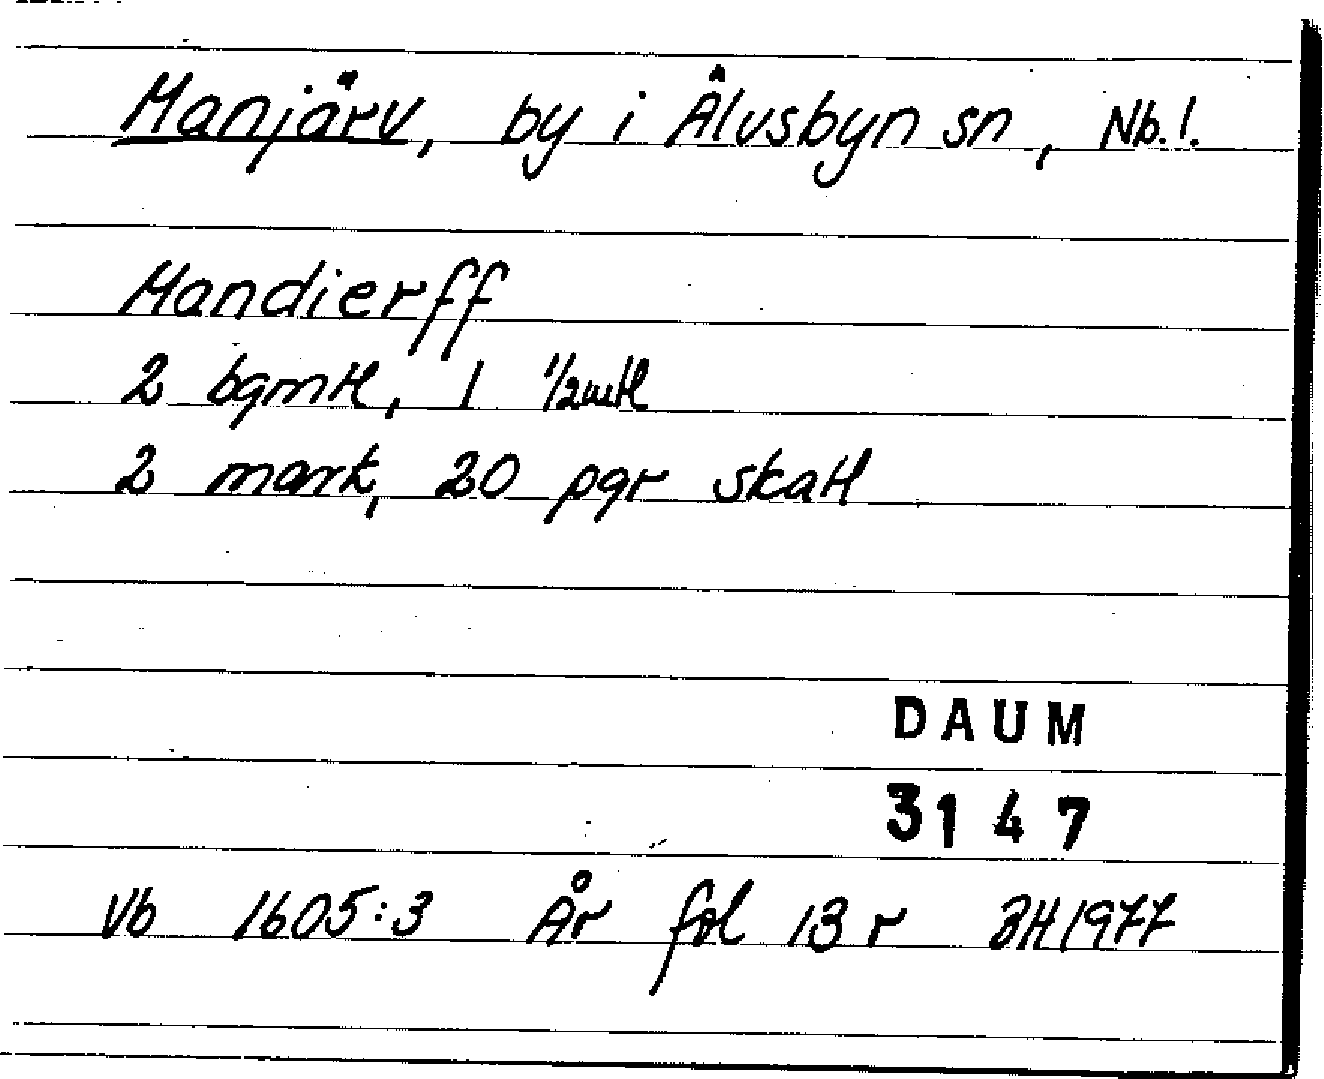 Manjärv, by i Älvsbyn sn, Nb.l.
Mandierff
2 bgmtl, 1 1/2mtl
2 mark, 20 pgr skatt
DAUM
3147
Vb 1605:3 År fol 13 r BH1977